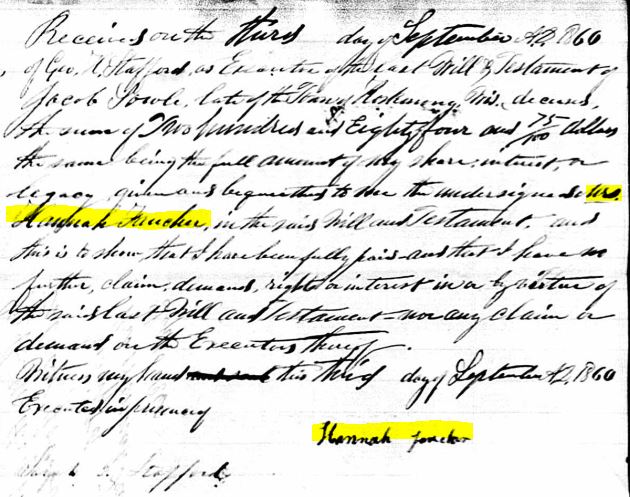 Received on the third day of September A.D. 1860
of Geo. W. Stafford, as Executor of the Last Will & Testament of
Jacob Fowle, late of the Town of Koskonong, Wis. deceased,
the sum of Two hundred and Eighty four and 75/100 dollars
the same being the full amount of my share, interest, or
legacy given and bequeathed to me the undersigned Mrs.
Hannah Faucher, in the said Will and Testament, and
this is to show, that I have been fully paid and that I have no
further, claim, demand, right or interest in or by virtue of
the said Last Will and Testament nor any claim or
demand on the Executors thereof.
Witness my hand this third day of September A.D. 1860
Executed in presence of
Hannah
Stafford